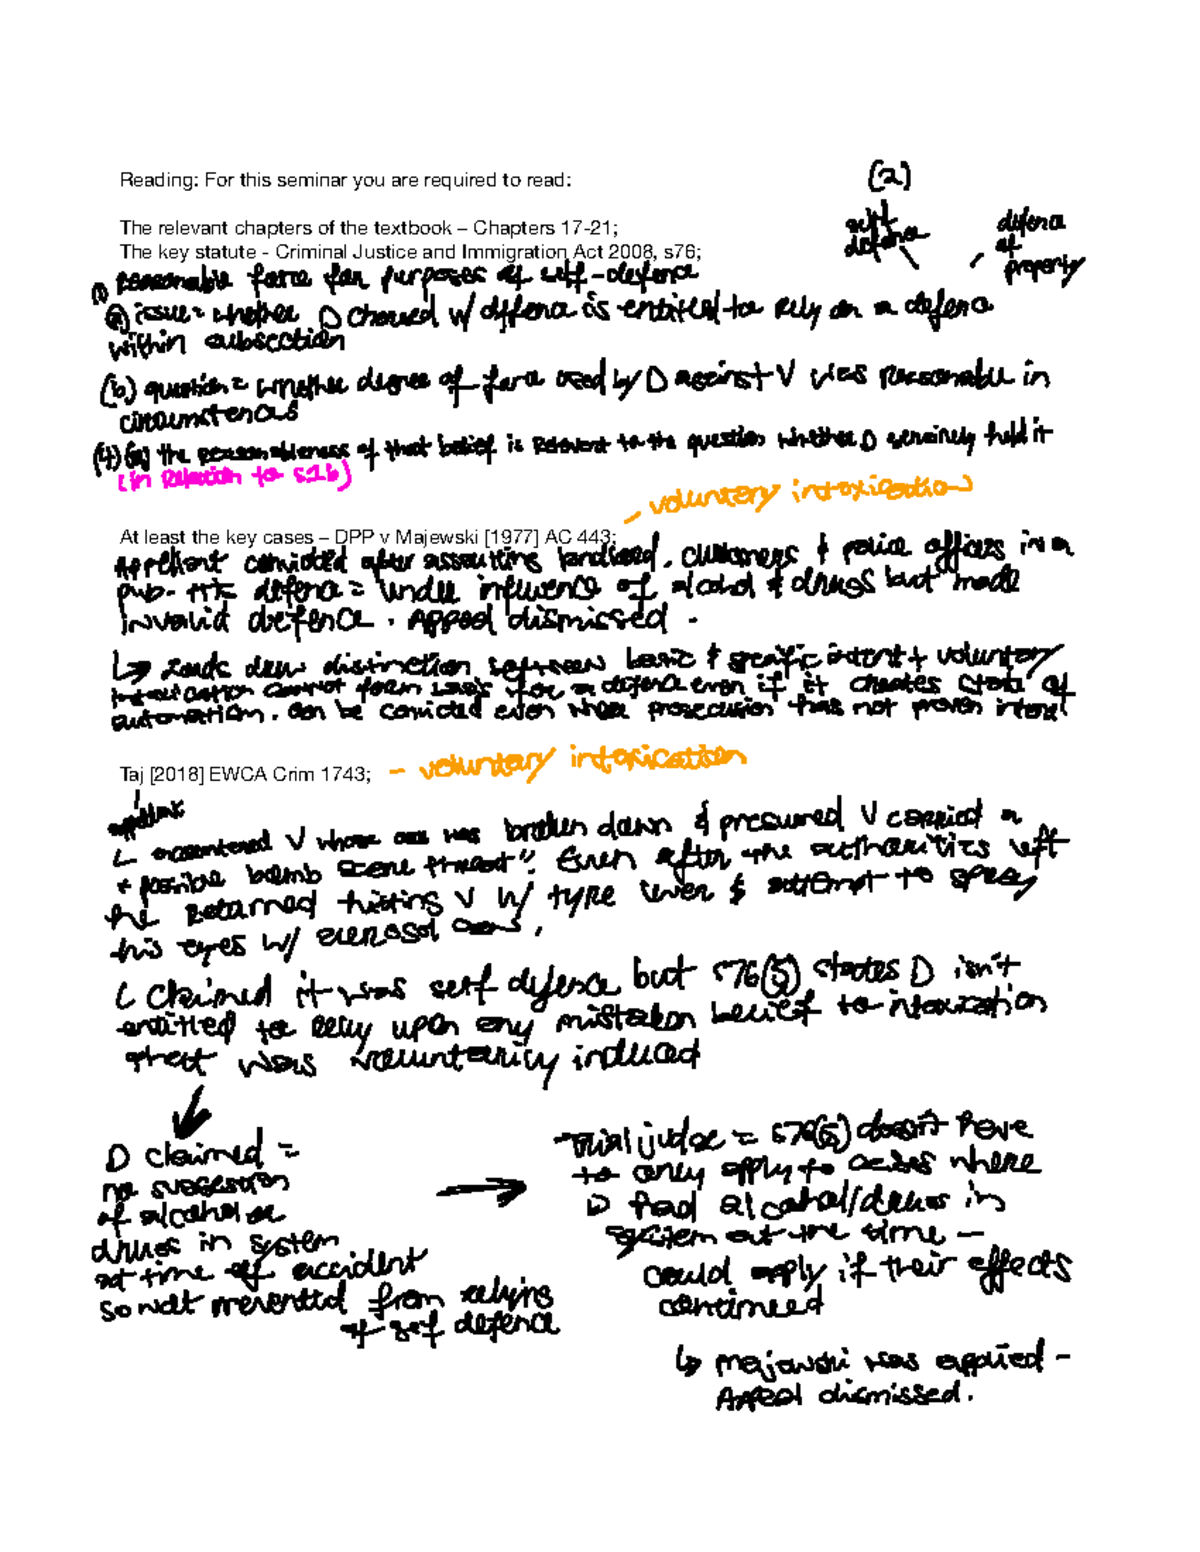 Reading: For this seminar you are required to read:
(2)
self defence
defence of property
The relevant chapters of the textbook – Chapters 17-21;
The key statute - Criminal Justice and Immigration Act 2008, s76;
(1) reasonable force for purposes of self-defence
(a) issue = whether D charged w/ offence is entitled to rely on a defence
within subsection
(b) question = whether degree of force used by D against V was reasonable in
circumstances
(4)(a) the reasonableness of that belief is relevant to the question whether D genuinely held it
(in relation to s1b)
voluntary intoxication
At least the key cases – DPP v Majewski [1977] AC 443;
Appellant convicted after assaulting landlord, customers & police officers in a
pub. His defence = under influence of alcohol & drugs but made
invalid defence. Appeal dismissed.
↳ Lords drew distinction between basic & specific intent & voluntary
intoxication cannot form basis for a defence even if it creates state of
automatism. Can be convicted even where prosecution has not proven intent
Taj [2018] EWCA Crim 1743; - voluntary intoxication
appellant
↳ encountered V whose car has broken down & presumed V carried a
possible bomb scene threat". Even after the authorities left
he returned hitting V w/ tyre lever & attempt to spray
his eyes w/ aerosol cans.
↳ Claimed it was self defence but s76(5) states D isn't
entitled to rely upon any mistaken belief to intoxication
that was voluntarily induced
D claimed =
no suggestion
of alcohol or
drugs in system
at time of accident
so not prevented from relying
of self defence
→ Trial judge = s76(5) doesn't have
to only apply to cases where
D had alcohol/drugs in
system at the time -
could apply if their effects
continued
↳ majewski was applied -
Appeal dismissed.